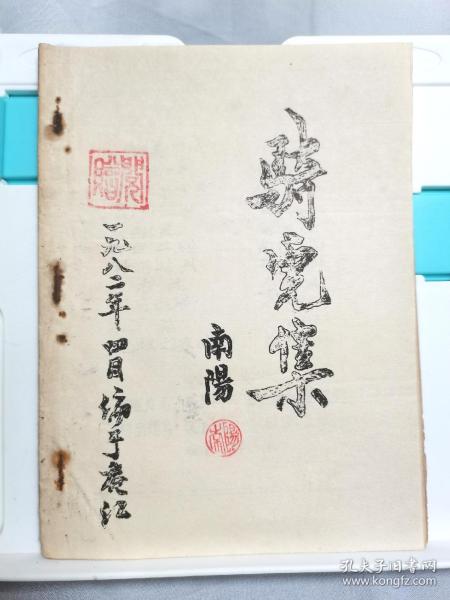 集
南陽
南陽
贈閱
一九八二年四月编于江
孔夫子旧书网
www.kongfz.com